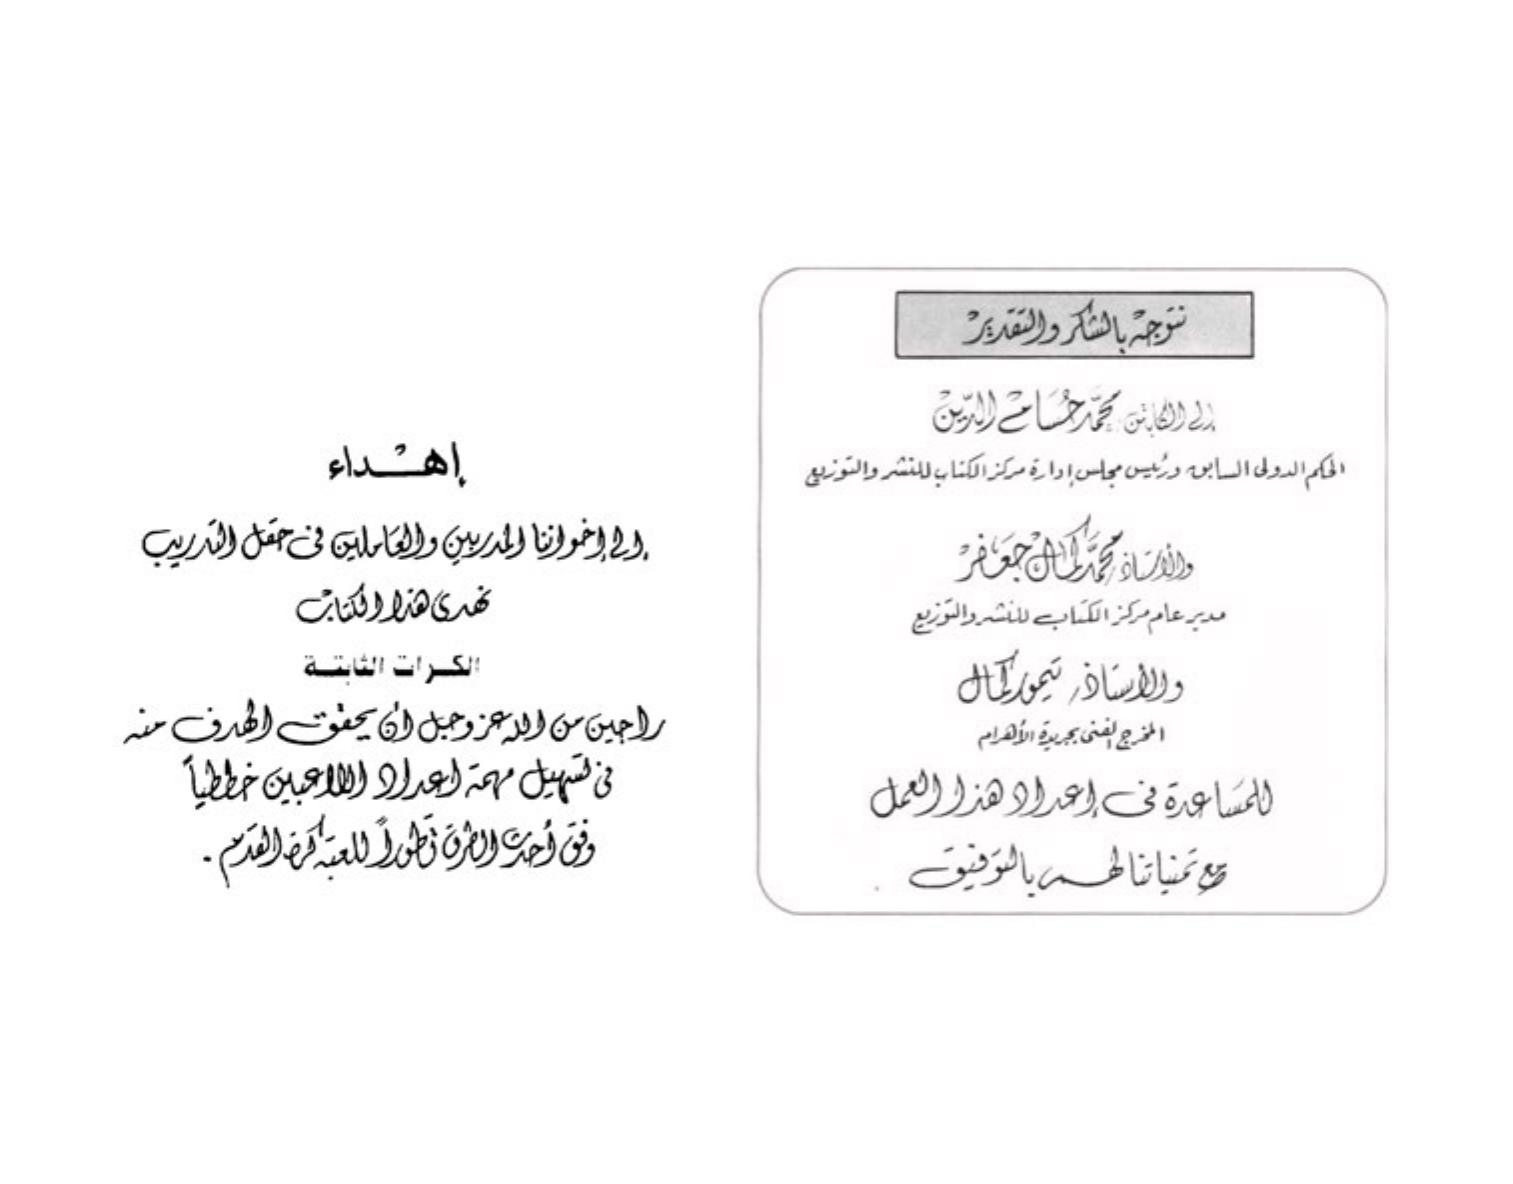 نتوجه بالشكر والتقدير
إلى الكابتن محمد حسام الدين
الحكم الدولى السابق ورئيس مجلس إدارة مركز الكتاب للنشر والتوزيع
والأستاذ محمد كمال جعفر
مدير عام مركز الكتاب للنشر والتوزيع
والأستاذ تيمور كمال
المخرج الفنى بجريدة الأهرام
للمساعدة فى إعداد هذا العمل
مع تمنياتنا لهم بالتوفيق
إهـداء
إلى إخواننا المدربين والعاملين فى حقل التدريب
نهدى هذا الكتاب
الكرات الثابتة
راجين من الله عز وجل أن يحقق الهدف منه
فى تسهيل مهمة اعداد اللاعبين خططياً
وفق أحدث الطرق تطوراً للعبة كرة القدم .